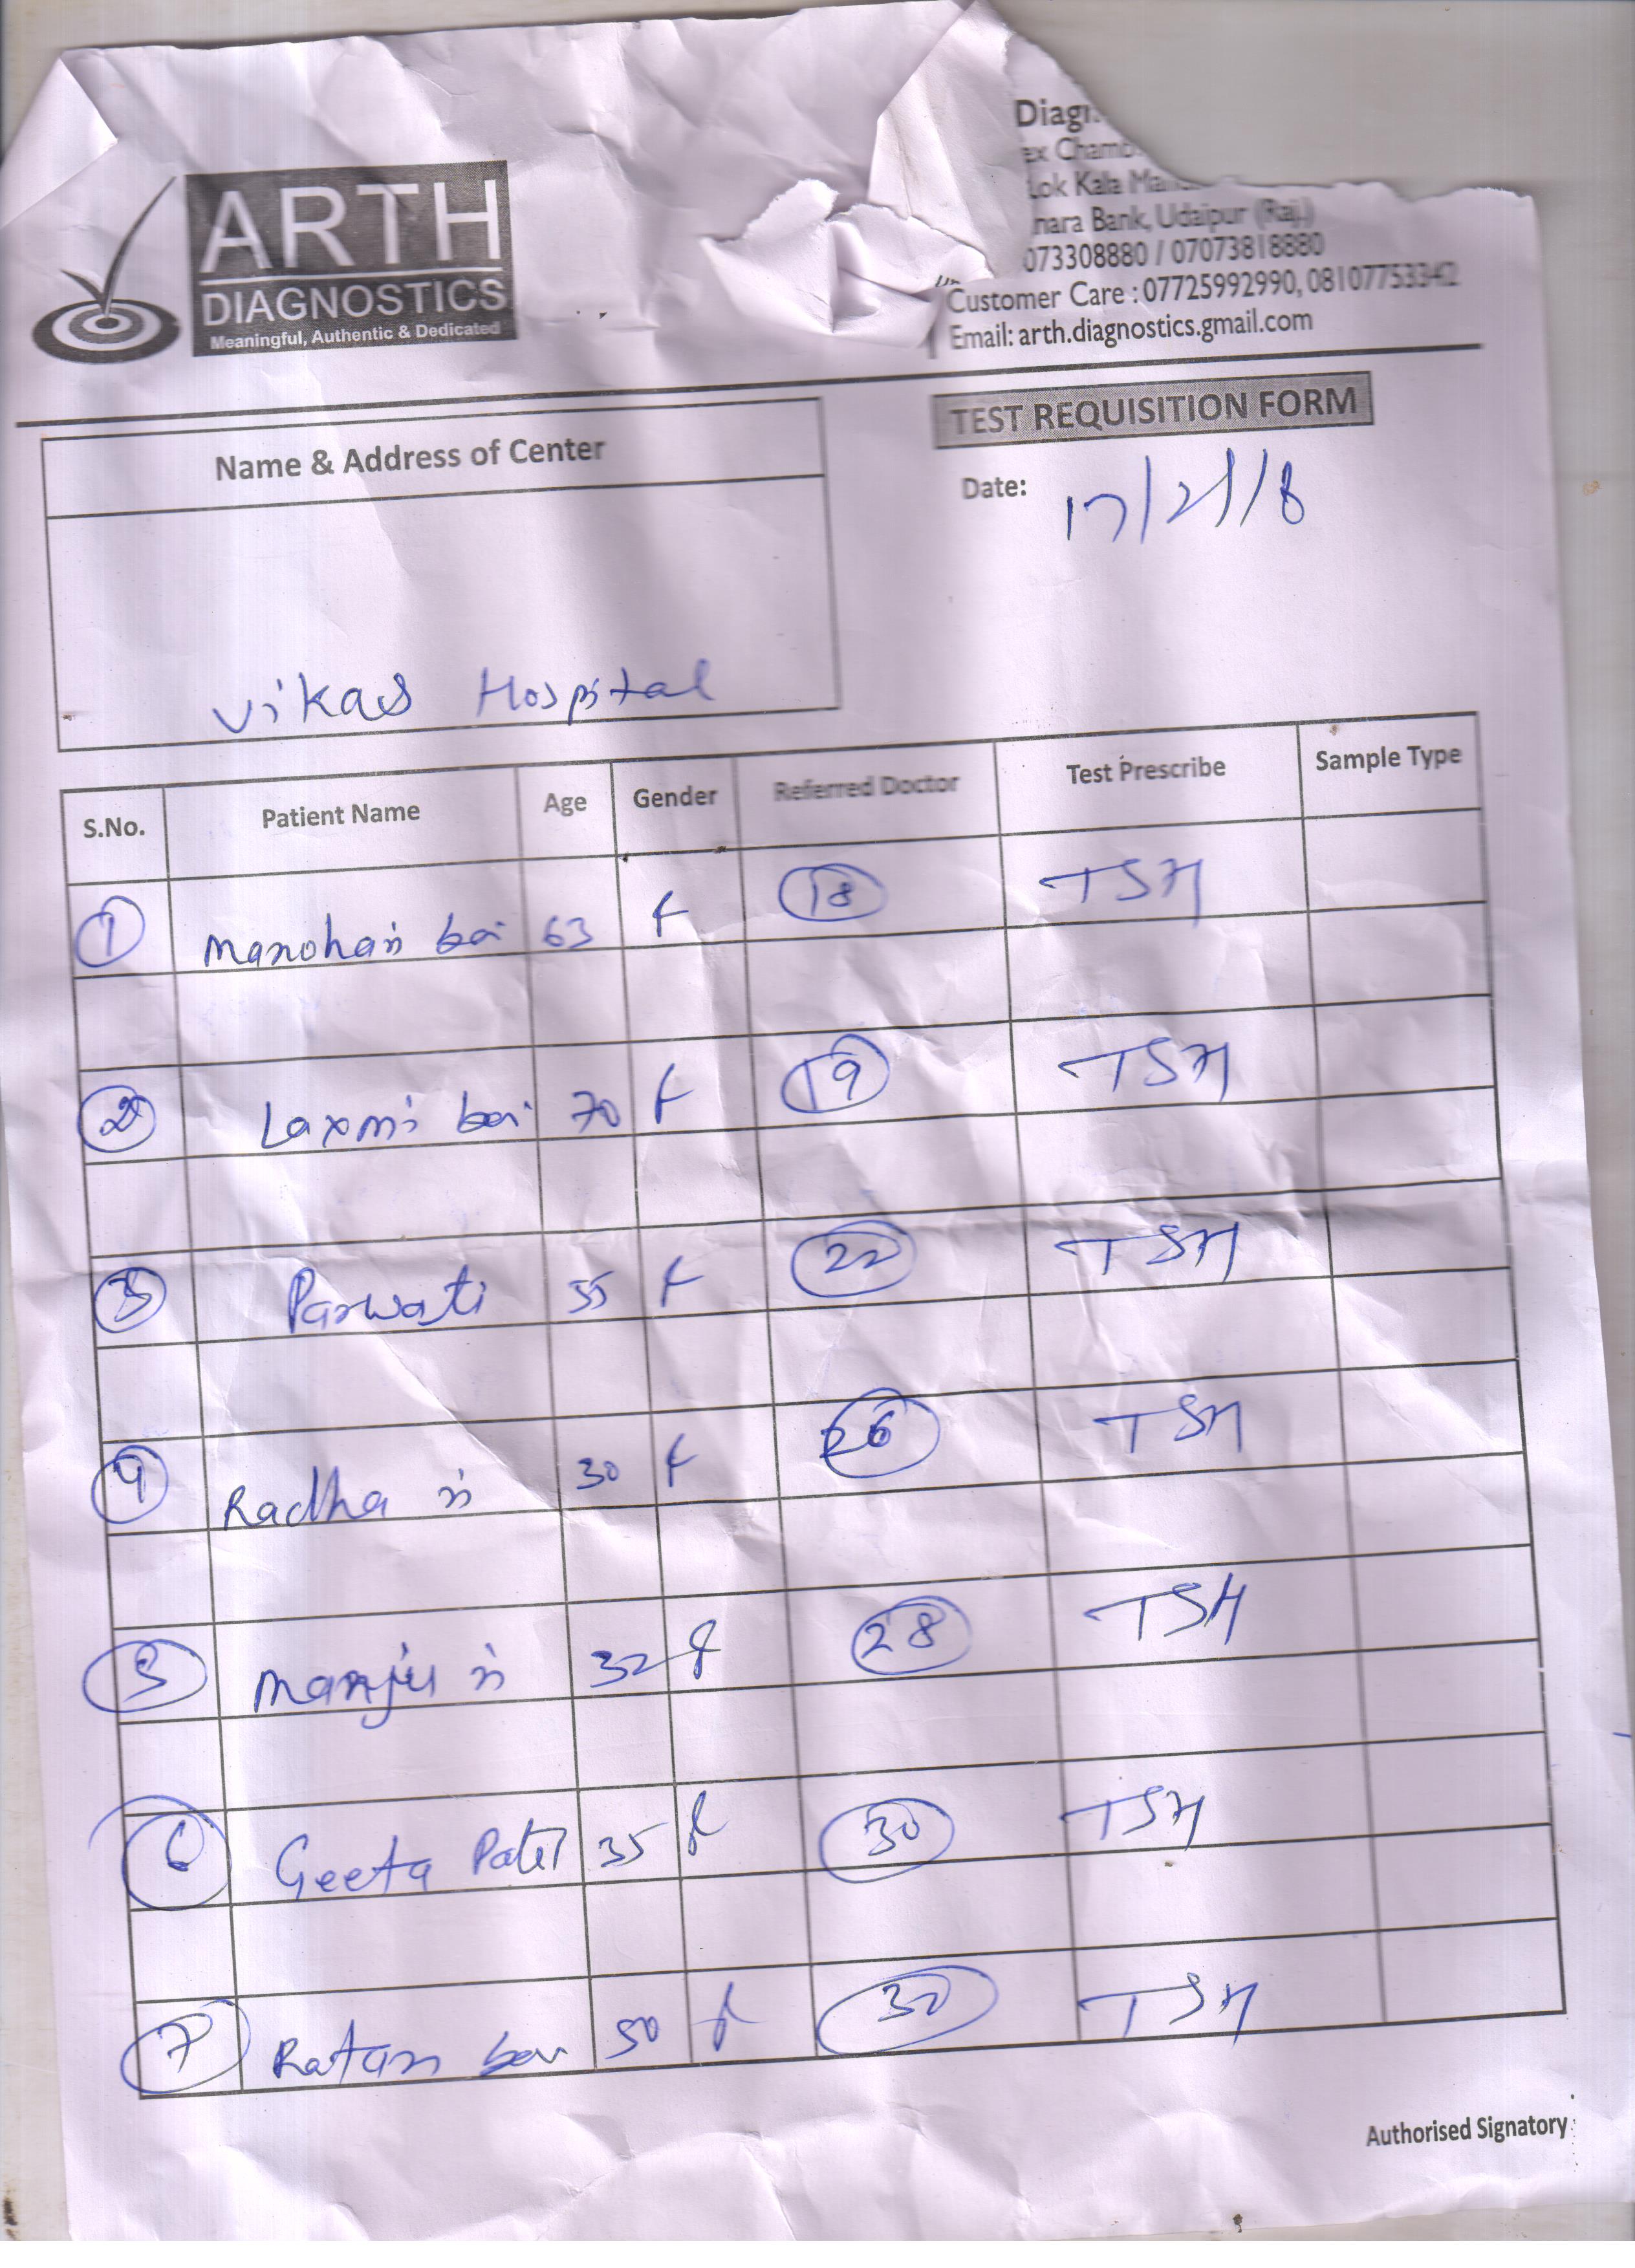 ARTH
DIAGNOSTICS
Meaningful, Authentic & Dedicated
Diag
ex Chamb
Lok Kala Man
nara Bank, Udaipur (Raj.)
073308880 / 07073818880
Customer Care : 07725992990, 08107753342
Email: arth.diagnostics.gmail.com
TEST REQUISITION FORM
Name & Address of Center
Date: 17/2/18
Vikas Hospital
S.No. Patient Name Age Gender Referred Doctor Test Prescribe Sample Type
1 Manohari bai 63 f 18 TSH
2 Laxmi bai 70 f 19 TSH
3 Parwati 55 f 22 TSH
4 Radha ji 30 f 26 TSH
5 Manju ji 32 f 28 TSH
6 Geeta Patel 35 f 30 TSH
7 Ratan bai 50 f 32 TSH
Authorised Signatory